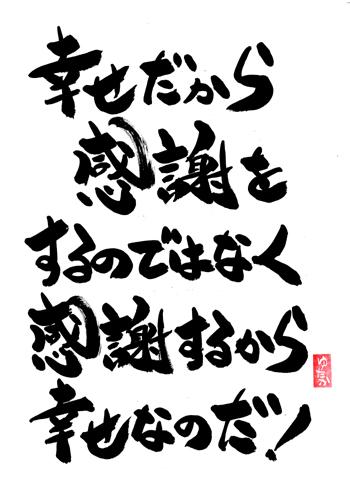 幸せだから
感謝を
するのではなく
感謝するから
幸せなのだ!
ゆたか